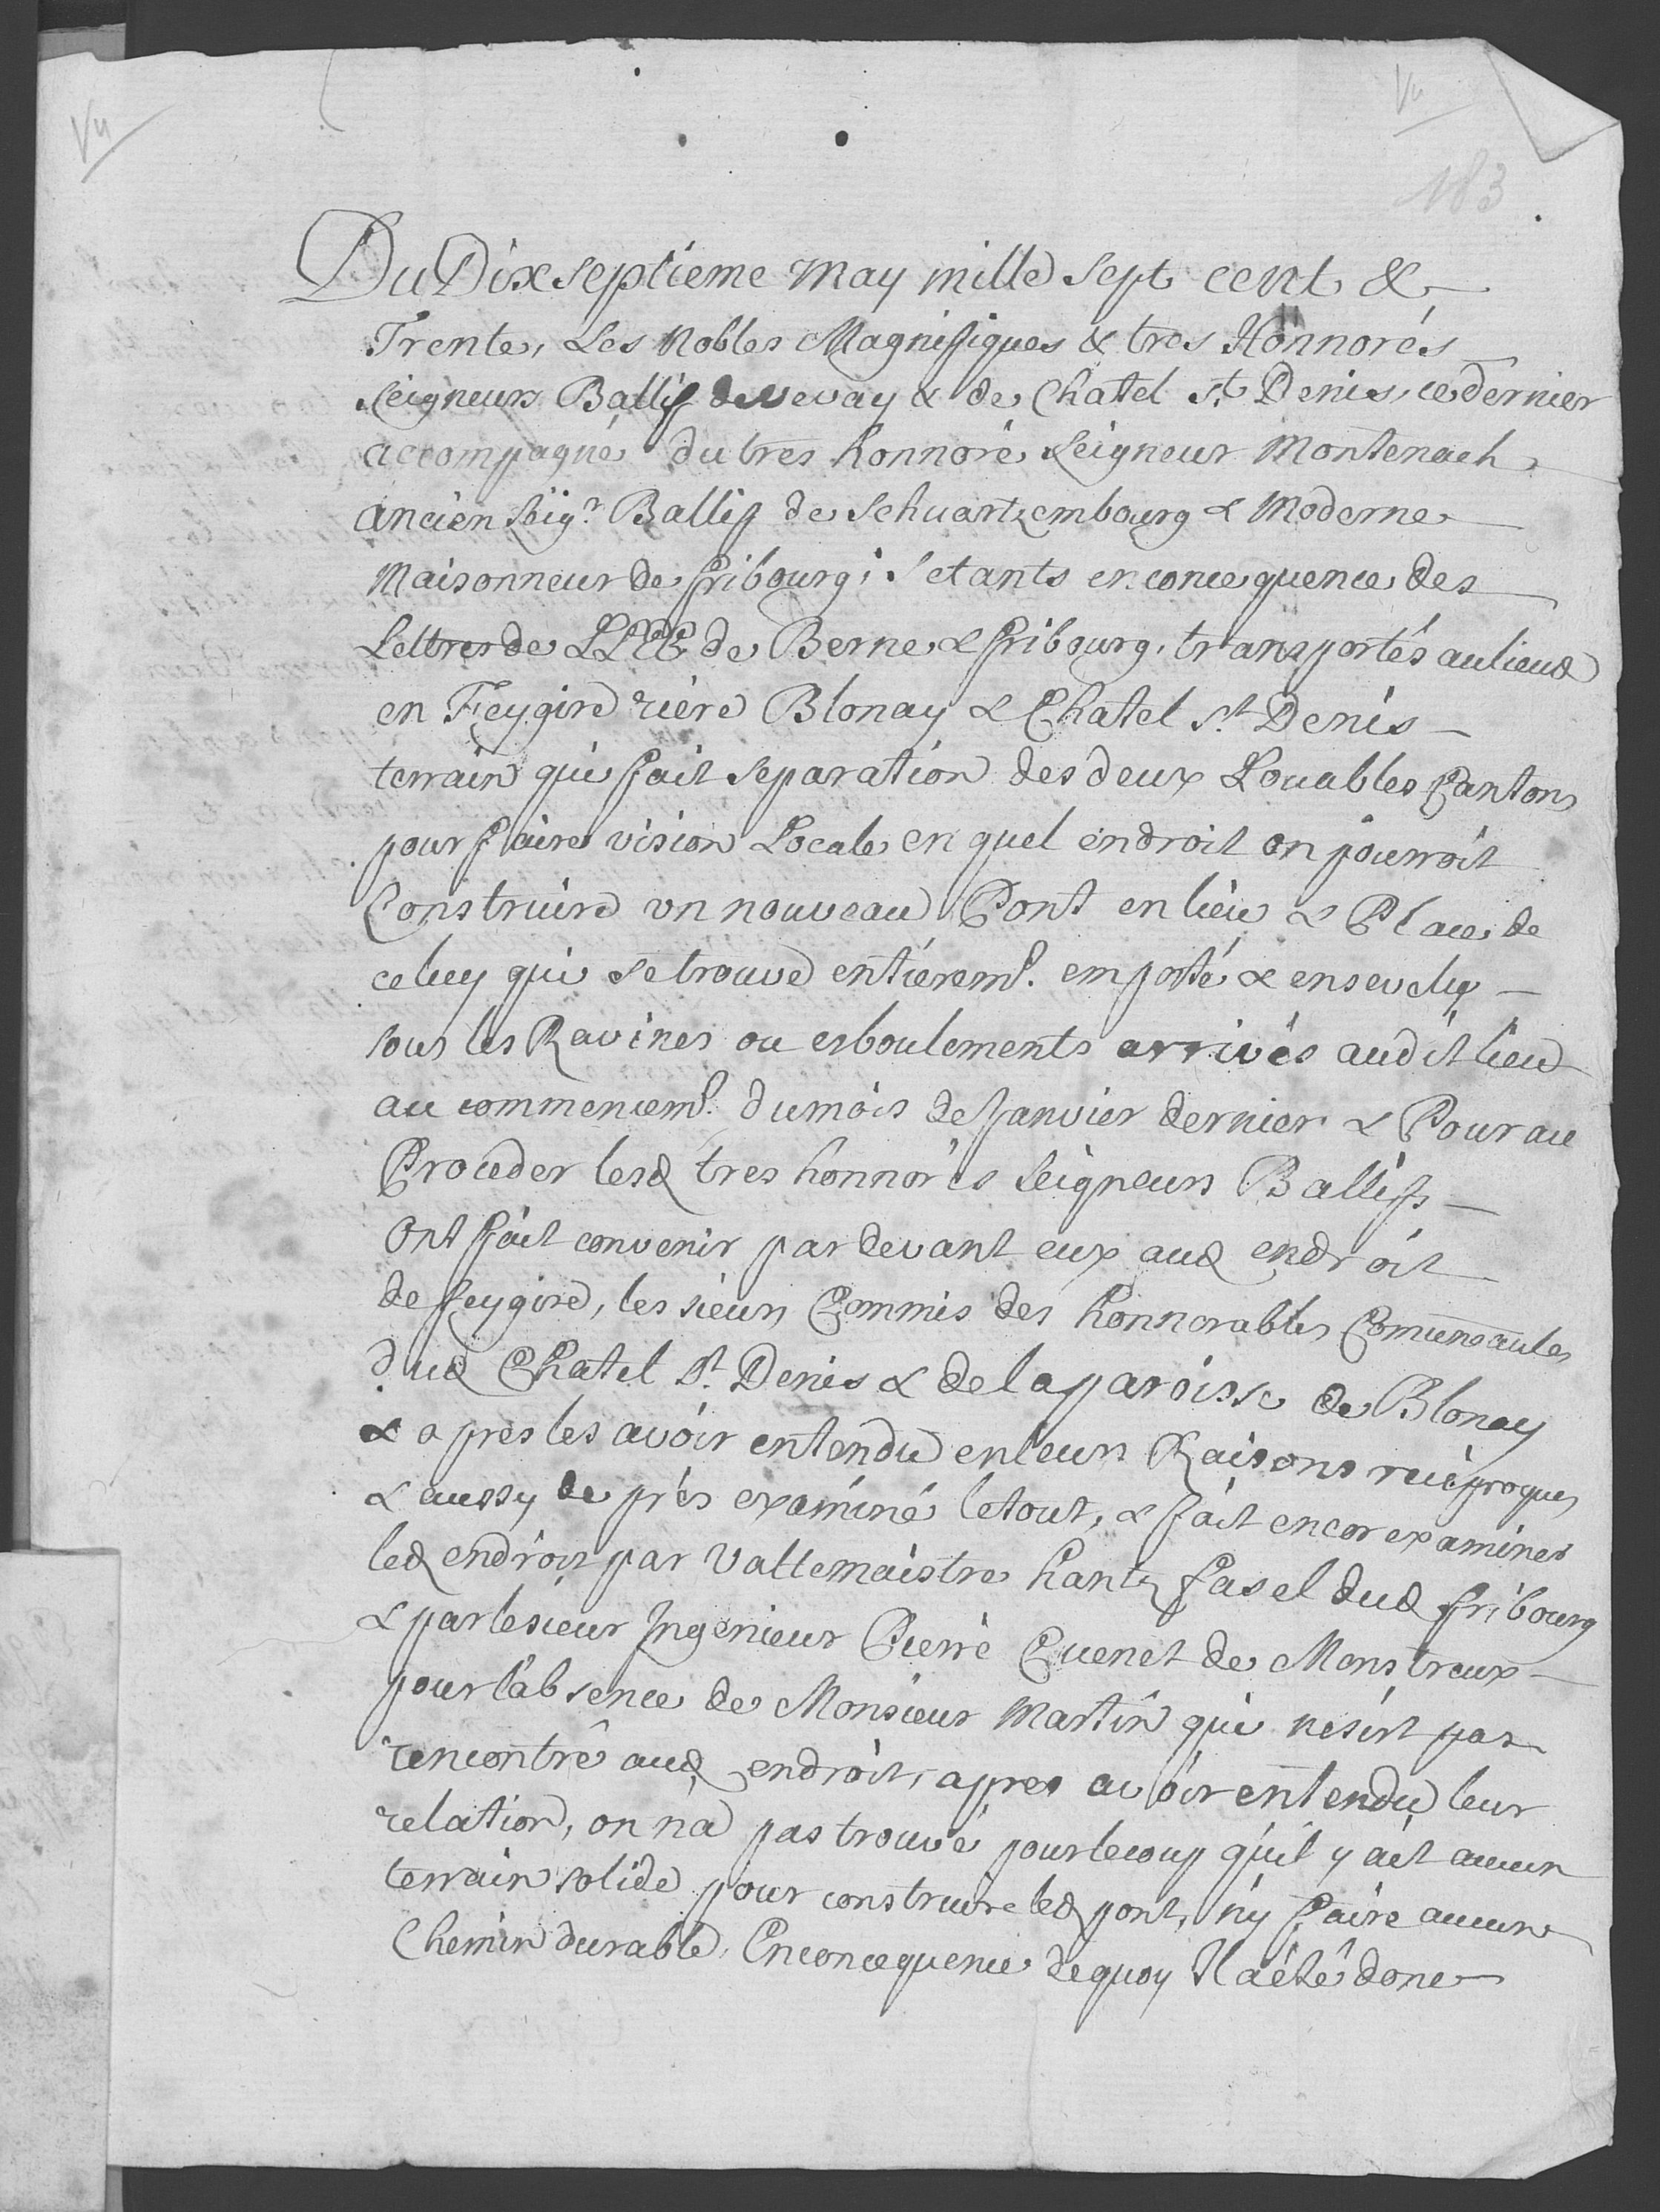 Vu
Vu
183
Du Dixseptieme may mille sept cent &
Trente, Les Nobles Magnifiques & tres Honnorés
Seigneurs Ballif de Vevay & de Chatel St. Denis, ce dernier
accompagné du tres honnoré Seigneur Montenach
ancien Seigr. Ballif de Schuartzembourg & Moderne
Maisonneur de fribourg; S'etants en concequence des
Lettres de LLEE de Berne & fribourg, transportés au lieud
en Feygire rière Blonay & Chatel St. Denis
terrain qui fait separation des deux Louables Cantons
pour faire vision Locale en quel endroit on pourroit
Construire un nouveau Pont en lieu & Place de
celuy qui se trouve entieremt. emporté & ensevely
sous les Ravines ou esboulements arrivés audit lieu
au commencemt. du mois de Janvier dernier & Pour au
Proceder lesd tres honnorés Seigneurs Ballifs
Ont fait convenir par devant eux aud endroit
de feygire, les sieurs Commis des honnorables Comunautes
dud Chatel St. Denis & de la paroisse de Blonay
& apres les avoir entendu en leurs Raisons reciproques
& aussy de près examiné le tout, & fait encor examiner
led endroit par Vallemaistre hantz fasel dud fribourg
& par le sieur Ingenieur Pierre Cuenet de Monstreux
pour l'absence de Monsieur Martin qui ne s'est pas
rencontré aud endroit, apres avoir entendu leur
relation, on n'a pas trouvé pour le coup qu'il y ait aucun
terrain solide pour construire led pont, n'y faire aucun
Chemin durable, En concequence dequoy Il a été donc